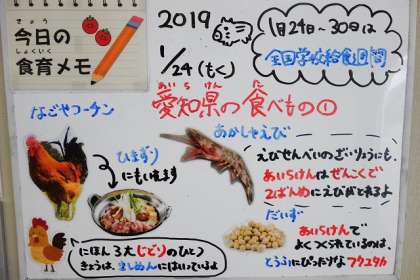 きょう
今日の
しょくいく
食育メモ
2019
1/24(もく)
1月24日~30日は
全国学校給食週間
あいちけん た
愛知県の食べもの①
なごやコーチン
ひまずり
にもいます
あかしゃえび
えびせんべいのざいりょうにも。
あいちけんはぜんこくで
2ばんめにえびがとれるよ
だいず
あいちけんで
よくつくられているのは、
とうふにぴったりなフクユタカ
にほん3大じどりのひとつ
きょうは、きしめんにはいっているよ